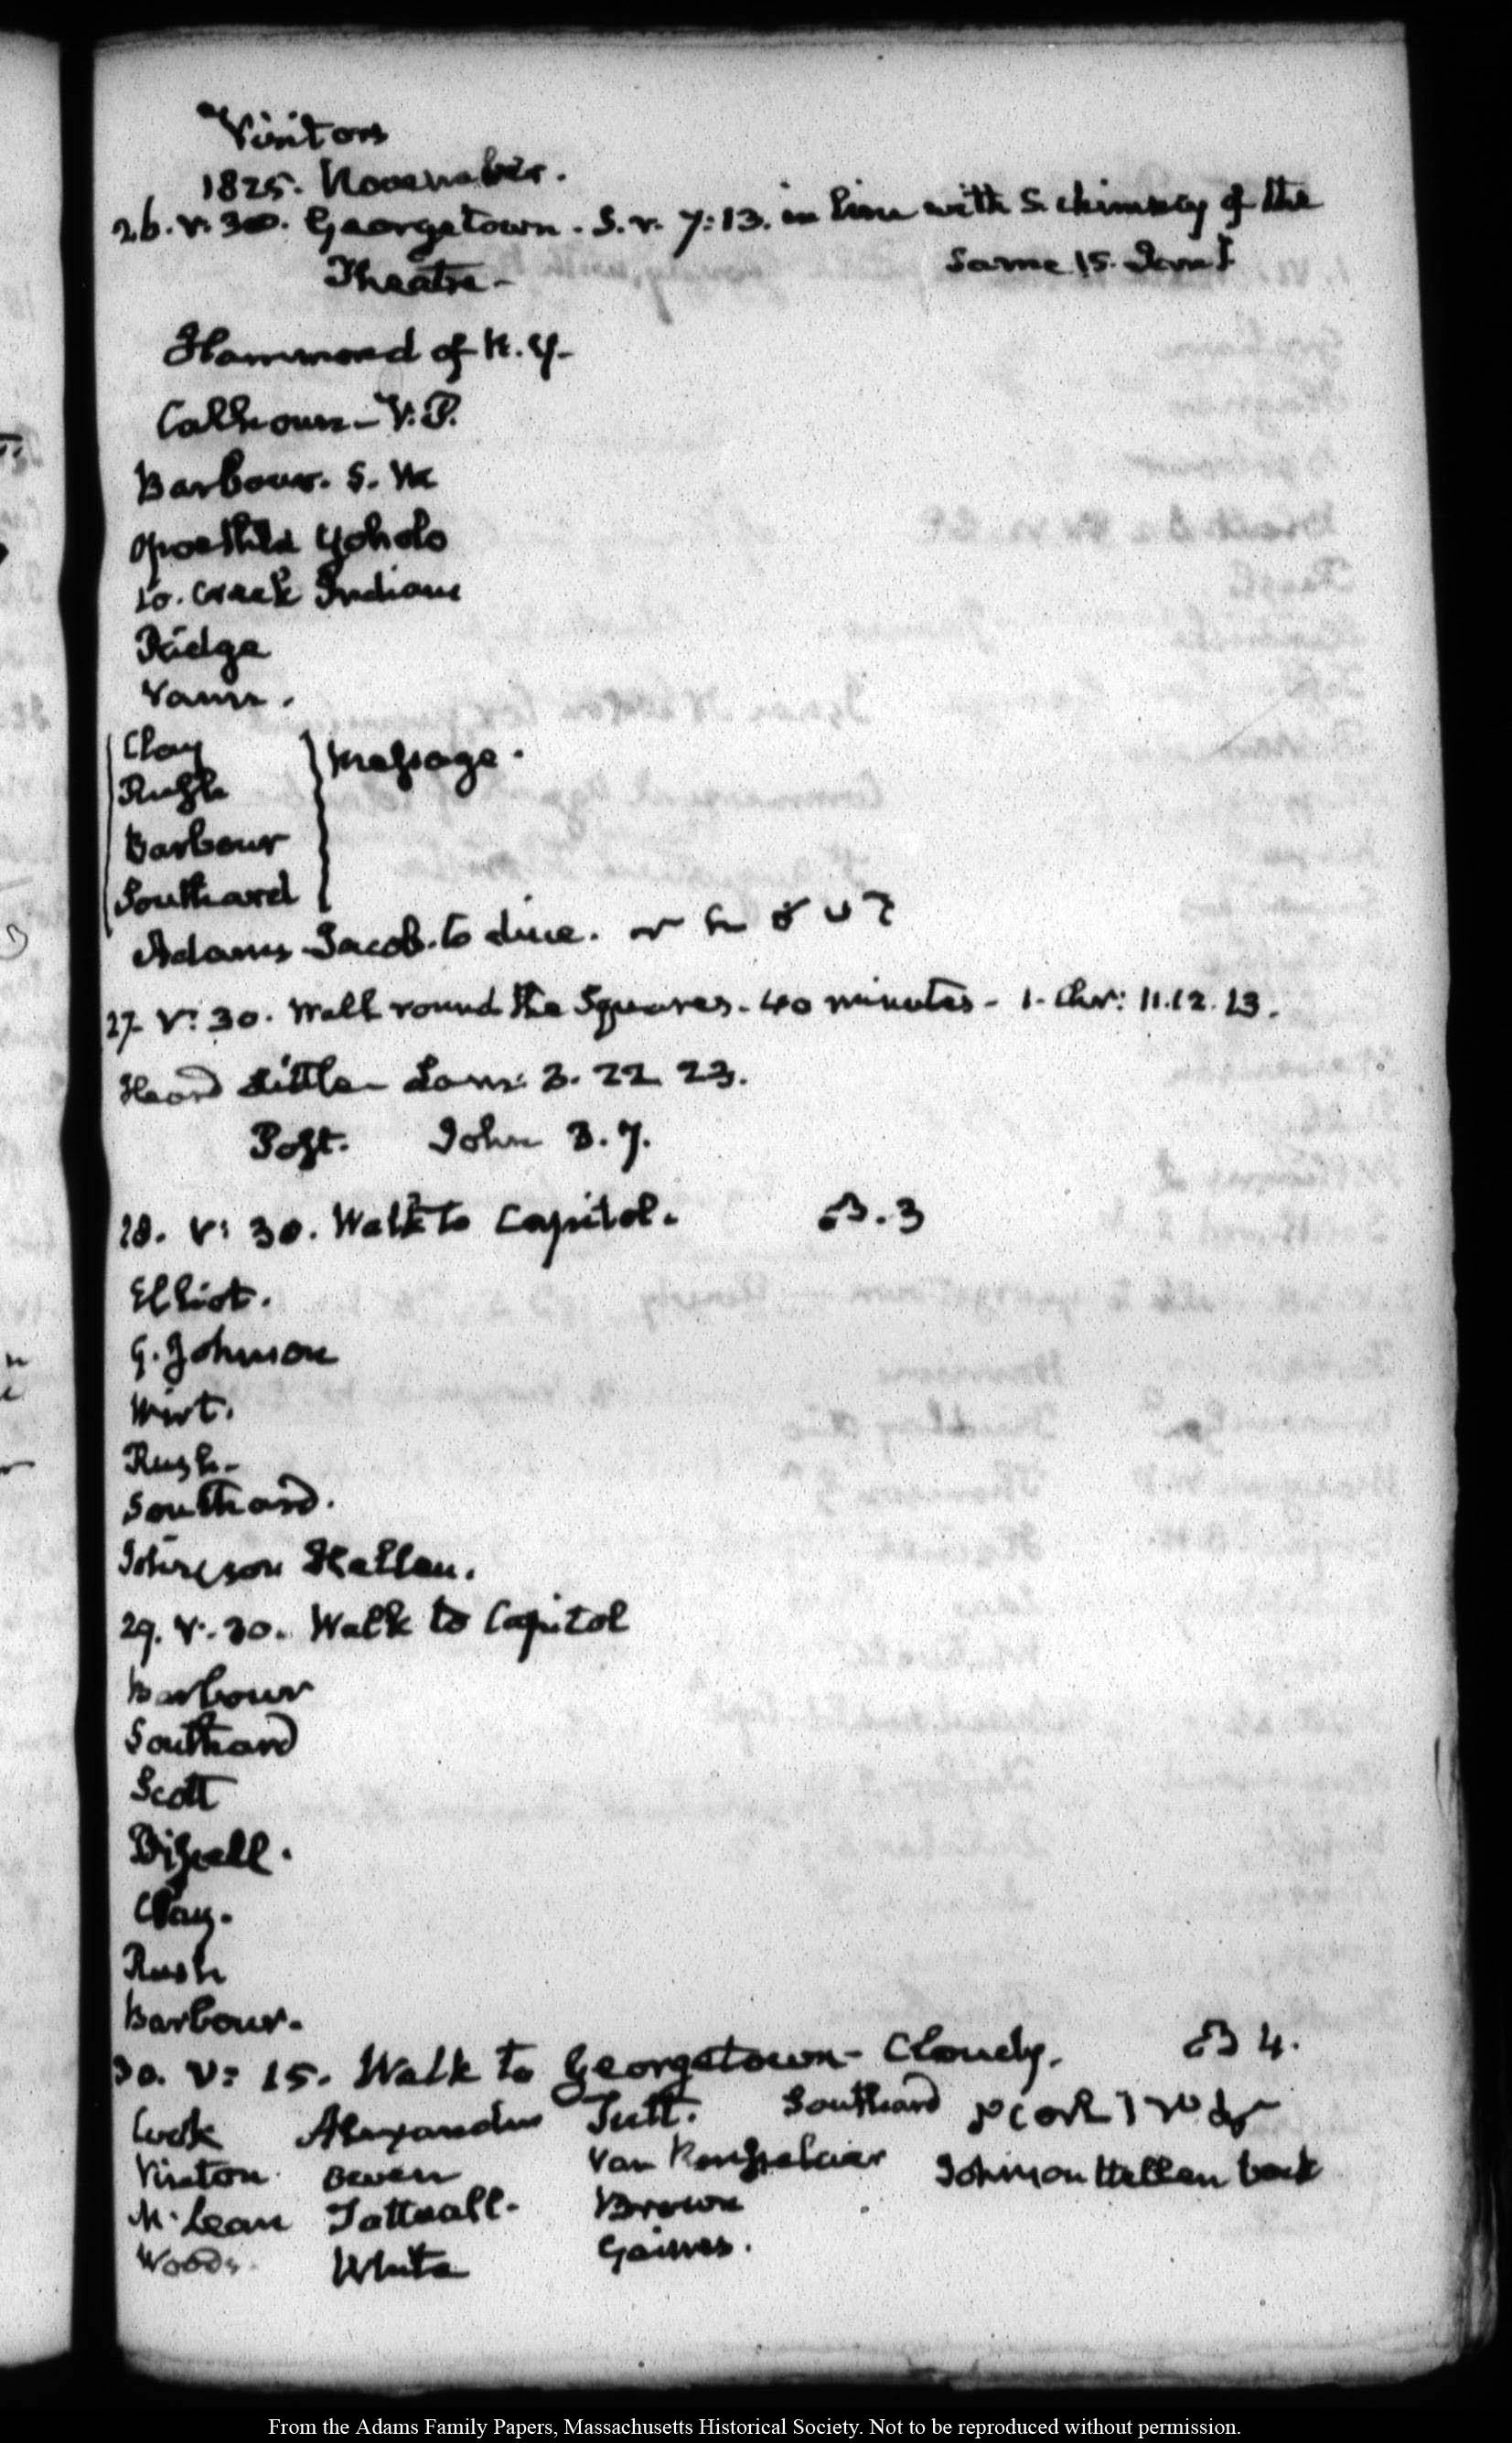 Visitors
1825. November.
26. V: 30. Georgetown. S. r. 7:13. in line with S. chimney of the
Theatre- same 15. Jan
Hammond of N. Y.-
Calhoun- V. P.
Barbour. S. W
Opoethle Yoholo
10. Creek Indians
Ridge
Vann.
Clay
Message.
Rush
Barbour
Southard
Adams Jacob. to dine.
27. V: 30. Walk round the Squares. 40 minutes- 1. Chr: 11. 12. 13.
Heard Little- Lam: 3. 22 23.
Post. John 3. 7.
28. V: 30. Walk to Capitol. 3
Elliot.
G. Johnson
Wirt.
Rush-
Southard.
Johnson Hellen.
29. V. 30. Walk to Capitol
Barbour
Southard
Scott
Bissell.
Clay.
Rush
Barbour.
30. V: 15. Walk to Georgetown- Cloudy. 4.
Cook Alexander Tutt. Southard
Vinton Owen Van Rensselaer Johnson Hellen back
McLean Tattnall- Brown
Woods. White Gaines.